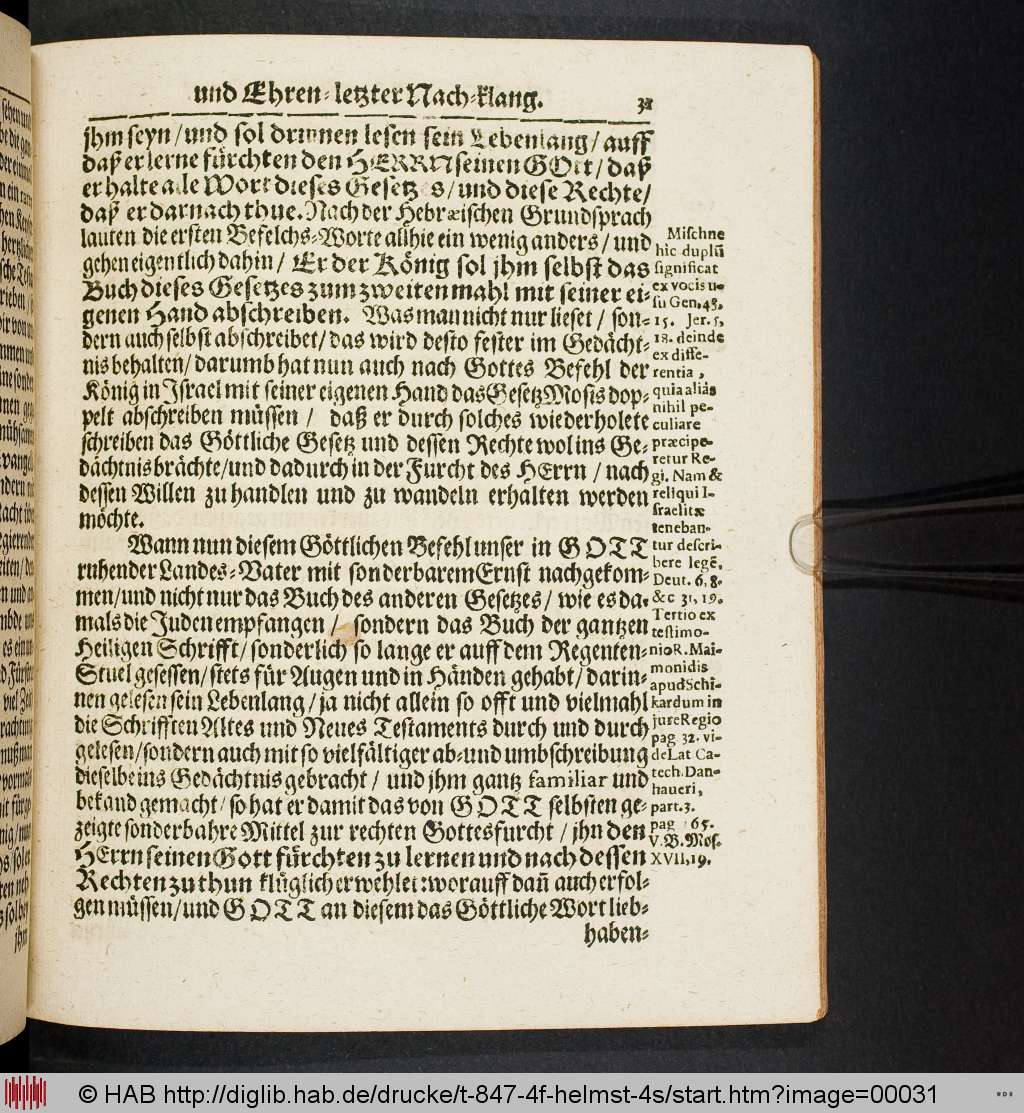 und Ehren-letzter Nach-klang. 31
jhm seyn/und sol drinnen lesen sein Lebenlang/ auff
daß er lerne fürchten den HERRN seinen GOtt/ daß
er halte alle Wort dieses Gesetzes/ und diese Rechte/
daß er darnach thue. Nach der Hebræischen Grundsprach
lauten die ersten Befelchs-Worte allhie ein wenig anders/ und
gehen eigentlich dahin/ Er der König sol jhm selbst das
Buch dieses Gesetzes zum zweiten mahl mit seiner ei-
genen Hand abschreiben. Was man nicht nur lieset/ son-
dern auch selbst abschreibet/ das wird desto fester im Gedächt-
nis behalten/ darumb hat nun auch nach Gottes Befehl der
König in Jsrael mit seiner eigenen Hand das Gesetz Mosis dop-
pelt abschreiben müssen/ daß er durch solches wiederholete
schreiben das Göttliche Gesetz und dessen Rechte wol ins Ge-
dächtnis brächte/und dadurch in der Furcht des HErrn/ nach
dessen Willen zu handlen und zu wandeln erhalten werden
möchte.
Wann nun diesem Göttlichen Befehl unser in GOTT
ruhender Landes-Vater mit sonderbarem Ernst nachgekom-
men/und nicht nur das Buch des anderen Gesetzes/ wie es da-
mals die Juden empfangen/ sondern das Buch der gantzen
Heiligen Schrifft/sonderlich so lange er auff dem Regenten-
Stuel gesessen/stets für Augen und in Händen gehabt/ darin-
nen gelesen sein Lebenlang/ja nicht allein so offt und vielmahl
die Schrifften Altes und Neues Testaments durch und durch
gelesen/sondern auch mit so vielfältiger ab-und umbschreibung
dieselbe ins Gedächtnis gebracht/ und jhm gantz familiar und
bekand gemacht/so hat er damit das von GOTT selbsten ge-
zeigte sonderbahre Mittel zur rechten Gottesfurcht/ jhn den
HErrn seinen Gott fürchten zu lernen und nach dessen
Rechten zu thun klüglich erwehlet: worauff dañ auch erfol-
gen müssen/und GOTT an diesem das Göttliche Wort lieb-
haben-
Mischne
hic duplũ
significat
ex vocis u-
su Gen. 43.
15. Jer. 5,
18. deinde
ex diffe-
rentia,
quia aliàs
nihil pe-
culiare
præcipe-
retur Re-
gi. Nam &
reliqui I-
sraelitæ
teneban-
tur descri-
bere legẽ.
Deut. 6, 8.
&c 31, 19.
Tertio ex
testimo-
nio R. Mai-
monidis
apud Schi-
kardum in
jure Regio
pag 32. vi-
de Lat Ca-
tech. Dan-
haueri,
part. 3.
pag 65.
V. B. Mos.
XVII, 19.
© HAB http://diglib.hab.de/drucke/t-847-4f-helmst-4s/start.htm?image=00031